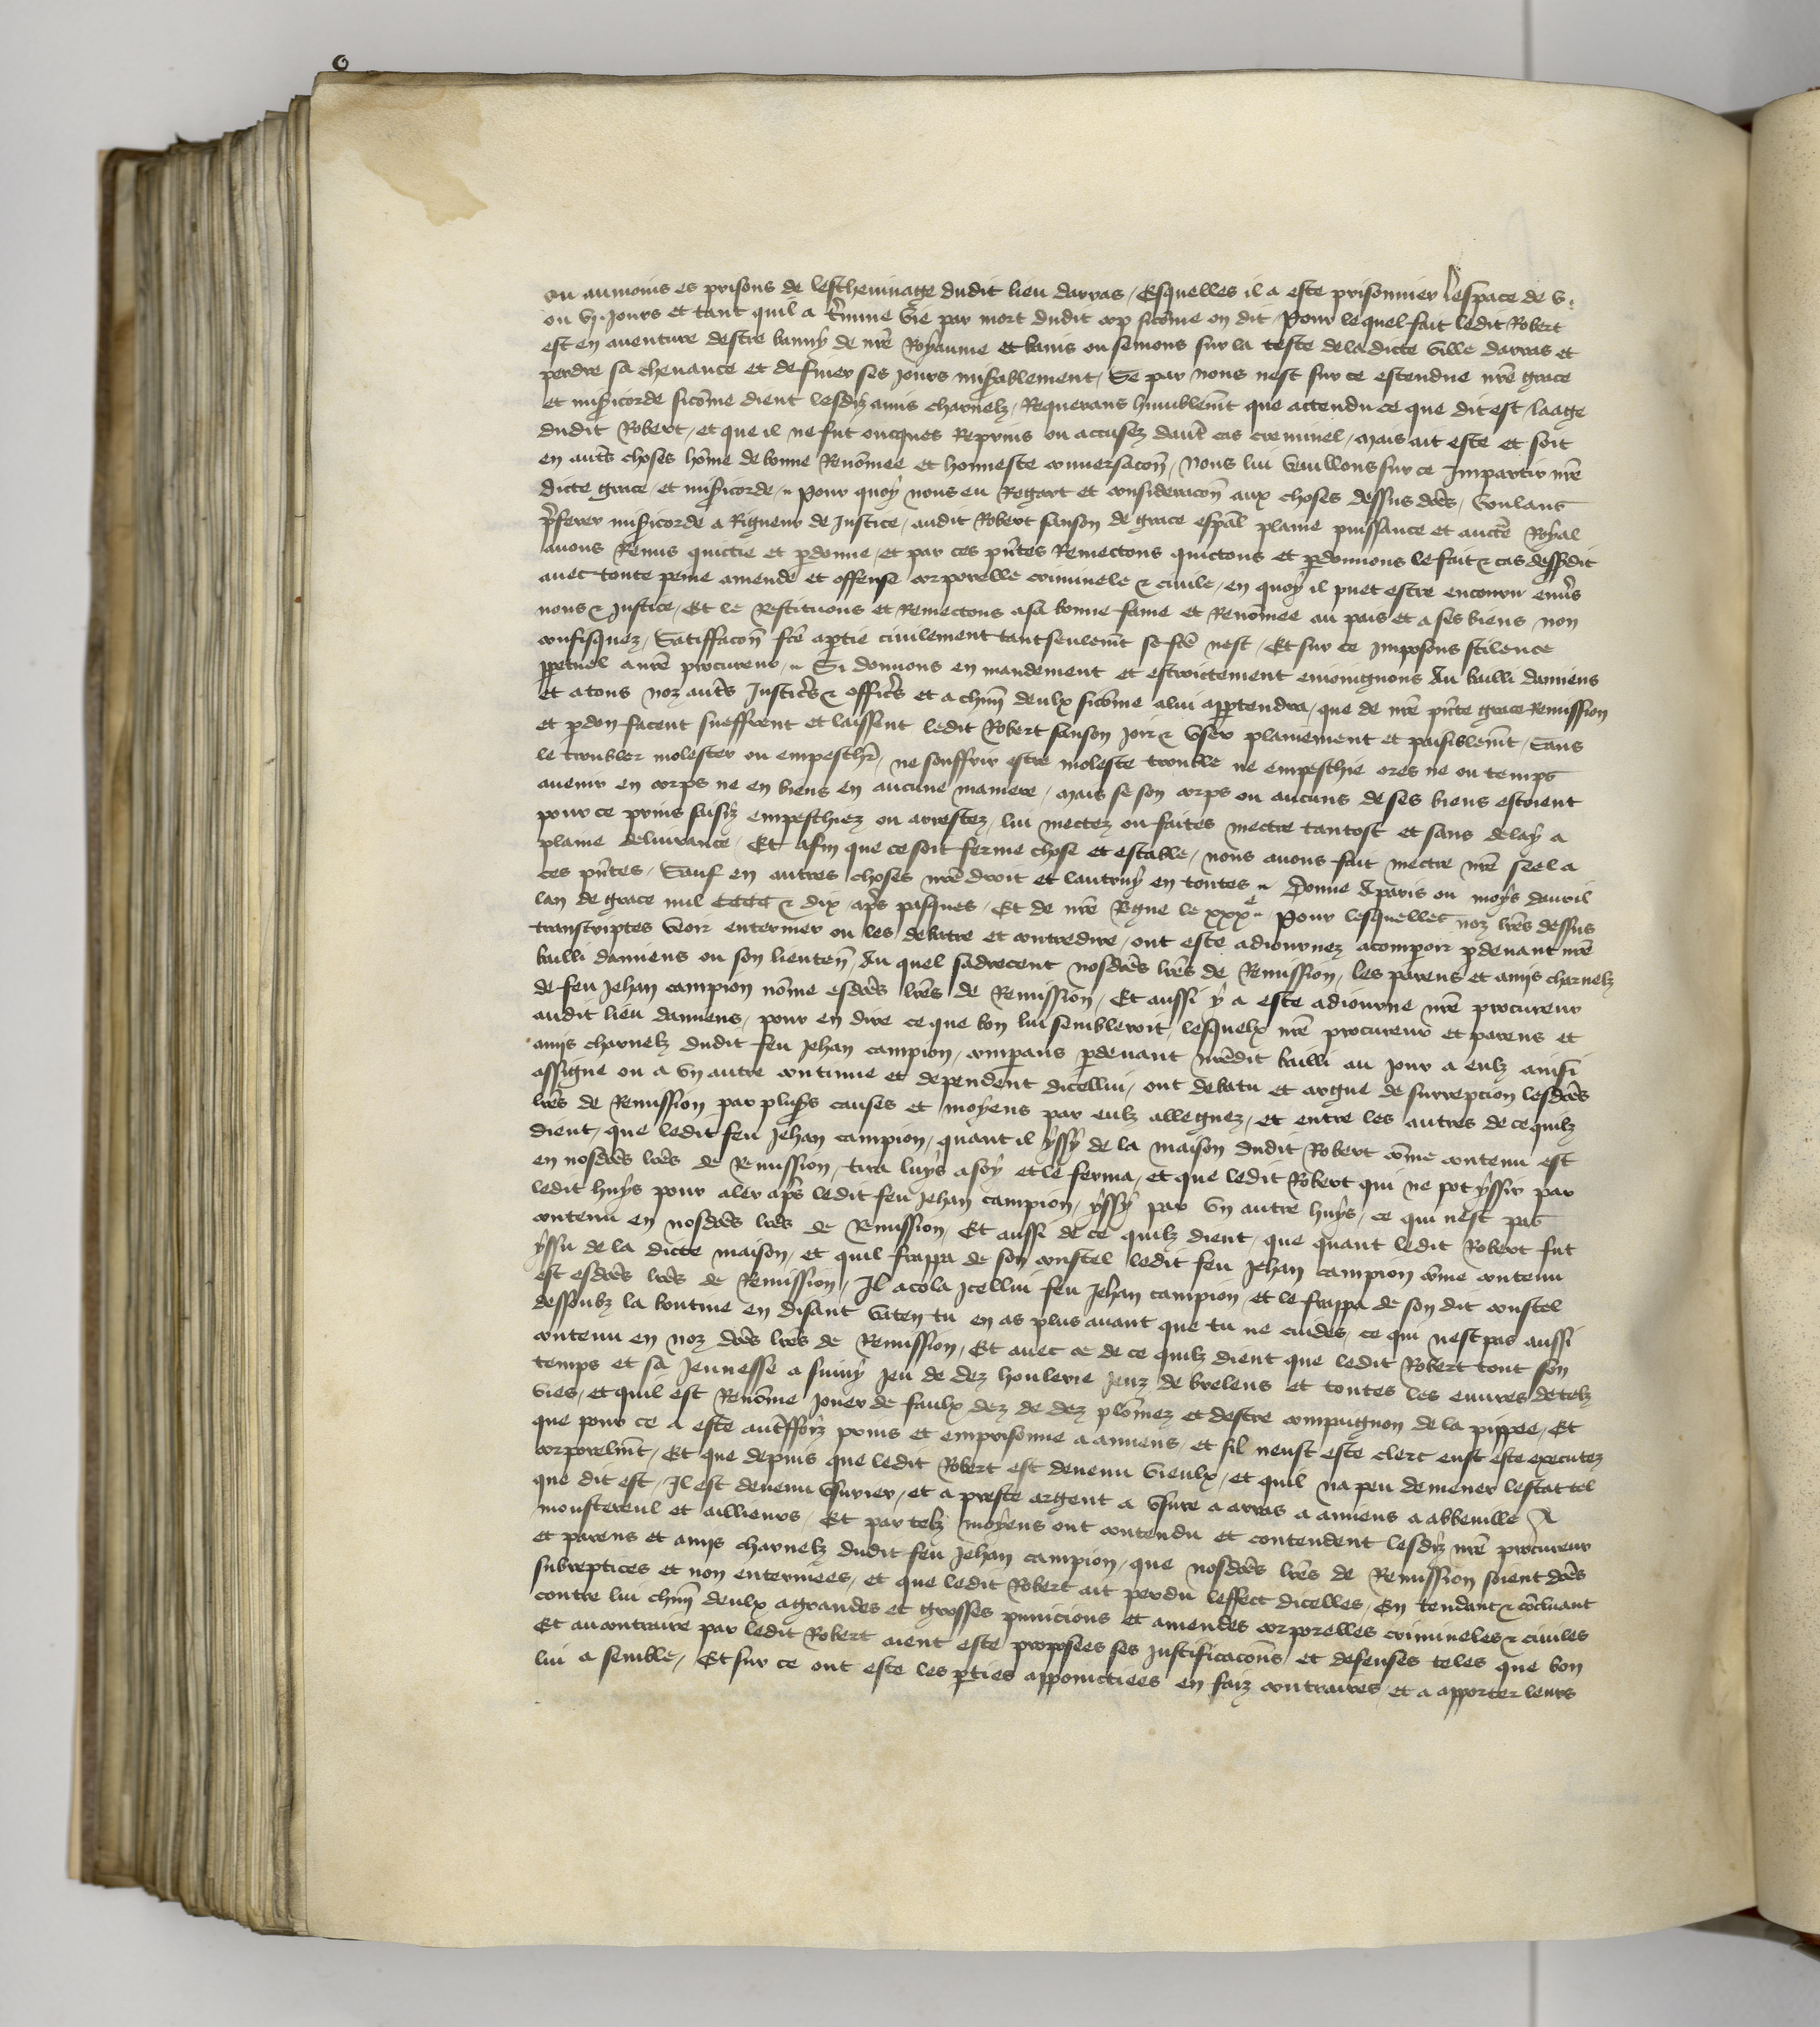 ou aumoins es prisons de leschevinage dudit lieu darras / Esquelles il a este prisonnier lespace de v.
ou vj. Jours et tant quil a t̃mine vie par mort dudit cop sicõme on dit / Pour lequel fait ledit Robert
est en aventure destre banny de nr̃e Royaume et banis ou semons sur la teste de la dicte ville darras et
perdre sa chevance et de finer ses jours mis̃ablement / Se par nous nest sur ce estendue nr̃e grace
et mis̃icorde sicõme dient lesdiz amis charnelz / Requerans humblemẽt que actendu ce que dit est / laage
dudit Robert / et que il ne fut oncques Reprins ou accusez dautr̃ cas creminel / mais ait este et soit
en autr̃s choses hõme de bonne Renõmee et honneste conversacoñ / Nous lui veuillons sur ce Impartir nr̃e
dicte grace / et mis̃icorde / Pour quoy nous eu Regart et consideracoñ aux choses dessus dc̃es / Voulans
p̃ferer mis̃icorde a Rigueur de Justice / audit Robert sanson de grace esp̃al plaine puissance et aucte Royal
avons Remis quictie et p̱donne / et par ces pñtes Remectons quictons et p̱donnons le fait & cas dess̃dit
avec toute peine amende et offense corporelle criminele & civile / en quoy il puet estre encouru env̑s
nous & Justice / Et le Restituons et Remectons a sa bonne fame et Renõmee au pais et a ses biens non
confisquez / Satiffacoñ fc̃e a p̱tie civilement tant seulemẽt se fc̃e nest / Et sur ce Imposons scilence
p̱petuel a nr̃e procureur / Si donnons en mandement et estroictement enioignons Au bailli damiens
et a tous noz autr̃s Justic̑s & offic̑s et a chũn deulx sicõme a lui app̱tendra / que de nr̃e pñte grace Remission
et p̱don facent sueffrent et laissent ledit Robert sanson joir & user plainement et paisiblemẽt / Sans
le troubler molester ou empescher̃ / ne souffrir estre moleste trouble ne empeschie ores ne ou temps
avenir en corps ne en biens en aucune maniere / mais se son corps ou aucuns de ses biens estoient
pour ce prins saisiz empeschiez ou arrestez / lui mectez ou faites mectre tantost et sans delay a
plaine delivrance / Et afin que ce soit ferme chose et estable / nous avons fait mectre nr̃e seel a
ces pñtes / Sauf en autres choses nr̃e droit et lautruy en toutes / Donne A paris ou moys davril
lan de grace mil cccc & dix ap̃s pasques / Et de nr̃e Regne le xxxᵉ / Pour lesquelles noz lr̃es dessus
transcriptes veoir enteriner ou les debatre et contredire / ont este adiournez a comparoir p̱devant nr̃e
bailli damiens ou son lieuteñ / Au quel sadrecent nosdc̃es lr̃es de Remission / les parens et amis charnelz
de feu Jehan campion nõme esdc̃es lr̃es de Remission / Et aussi y a este adiourne nr̃e procureur
audit lieu damiens / pour en dire ce que bon lui sembleroit / lesquelx nr̃e procureur et parens et
amis charnelz dudit feu Jehan campion / comparans p̱devant nr̃edit bailli au jour a eulz ainsi
assigne ou a un autre continue et dependẽt dicellui / ont debatu et argue de surrepcion lesdc̃es
lr̃es de Remission par plus̃s causes et moyens par eulz alleguez / et entre les autres de ce quilz
dient / que ledit feu Jehan campion / quant il yssy de la maison dudit Robert cõme contenu est
en nosdc̃es lr̃es de Remission / tira luys a soy et le ferma / et que ledit Robert qui ne pot yssir par
ledit huys pour aler ap̃s ledit feu Jehan campion / yssy par un autre huys / ce qui nest pas
contenu en nosdc̃es lr̃es de Remission / Et aussi de ce quilz dient / que quant ledit Robert fut
yssu de la dicte maison / et quil frappa de son coustel ledit feu Jehan campion cõme contenu
est esdc̃es lr̃es de Remission / Il acola Icellui feu Jehan campion / et le frappa de son dit coustel
dessoubz la boutine en disant vaten tu en as plus avant que tu ne cuides / ce qui nest pas aussi
contenu en noz dc̃es lr̃es de Remission / Et avec ce de ce quilz dient que ledit Robert tout son
temps et sa Jeunesse a suivy Jeu de dez houlerie Jeuz de brelens et toutes les euvres de telz
vies / et quil est Renõme Jouer de faulx dez de dez plõmez et destre compaignon de la pippee / Et
que pour ce a este autr̃ffoiz prins et emprisonne a amiens / et sil neust este clerc eust este executez
corporelmẽt / Et que depuis que ledit Robert est devenu vieulx / et quil na peu demener lestat tel
que dit est / Il est devenu usurier / et a preste argent a usure a arras a amiens a abbeville A
monstereul et ailleurs / Et par telz moyens ont contendu et contendent lesdiz nr̃e procureur
et parens et amis charnelz dudit feu Jehan campion / que nosdc̃es lr̃es de Remission soient dc̃es
subreptices et non enterinees / et que ledit Robert ait perdu leffect dicelles / En tendant & cõcluant
contre lui chũn deulx a grandes et grosses punicions et amendes corporelles criminelles & civiles
Et au contraire par ledit Robert aient este proposees ses Justificacoñs et defenses teles que bon
lui a semble / Et sur ce ont este les p̱ties appoinctiees en faiz contraires / et a apporter leurs